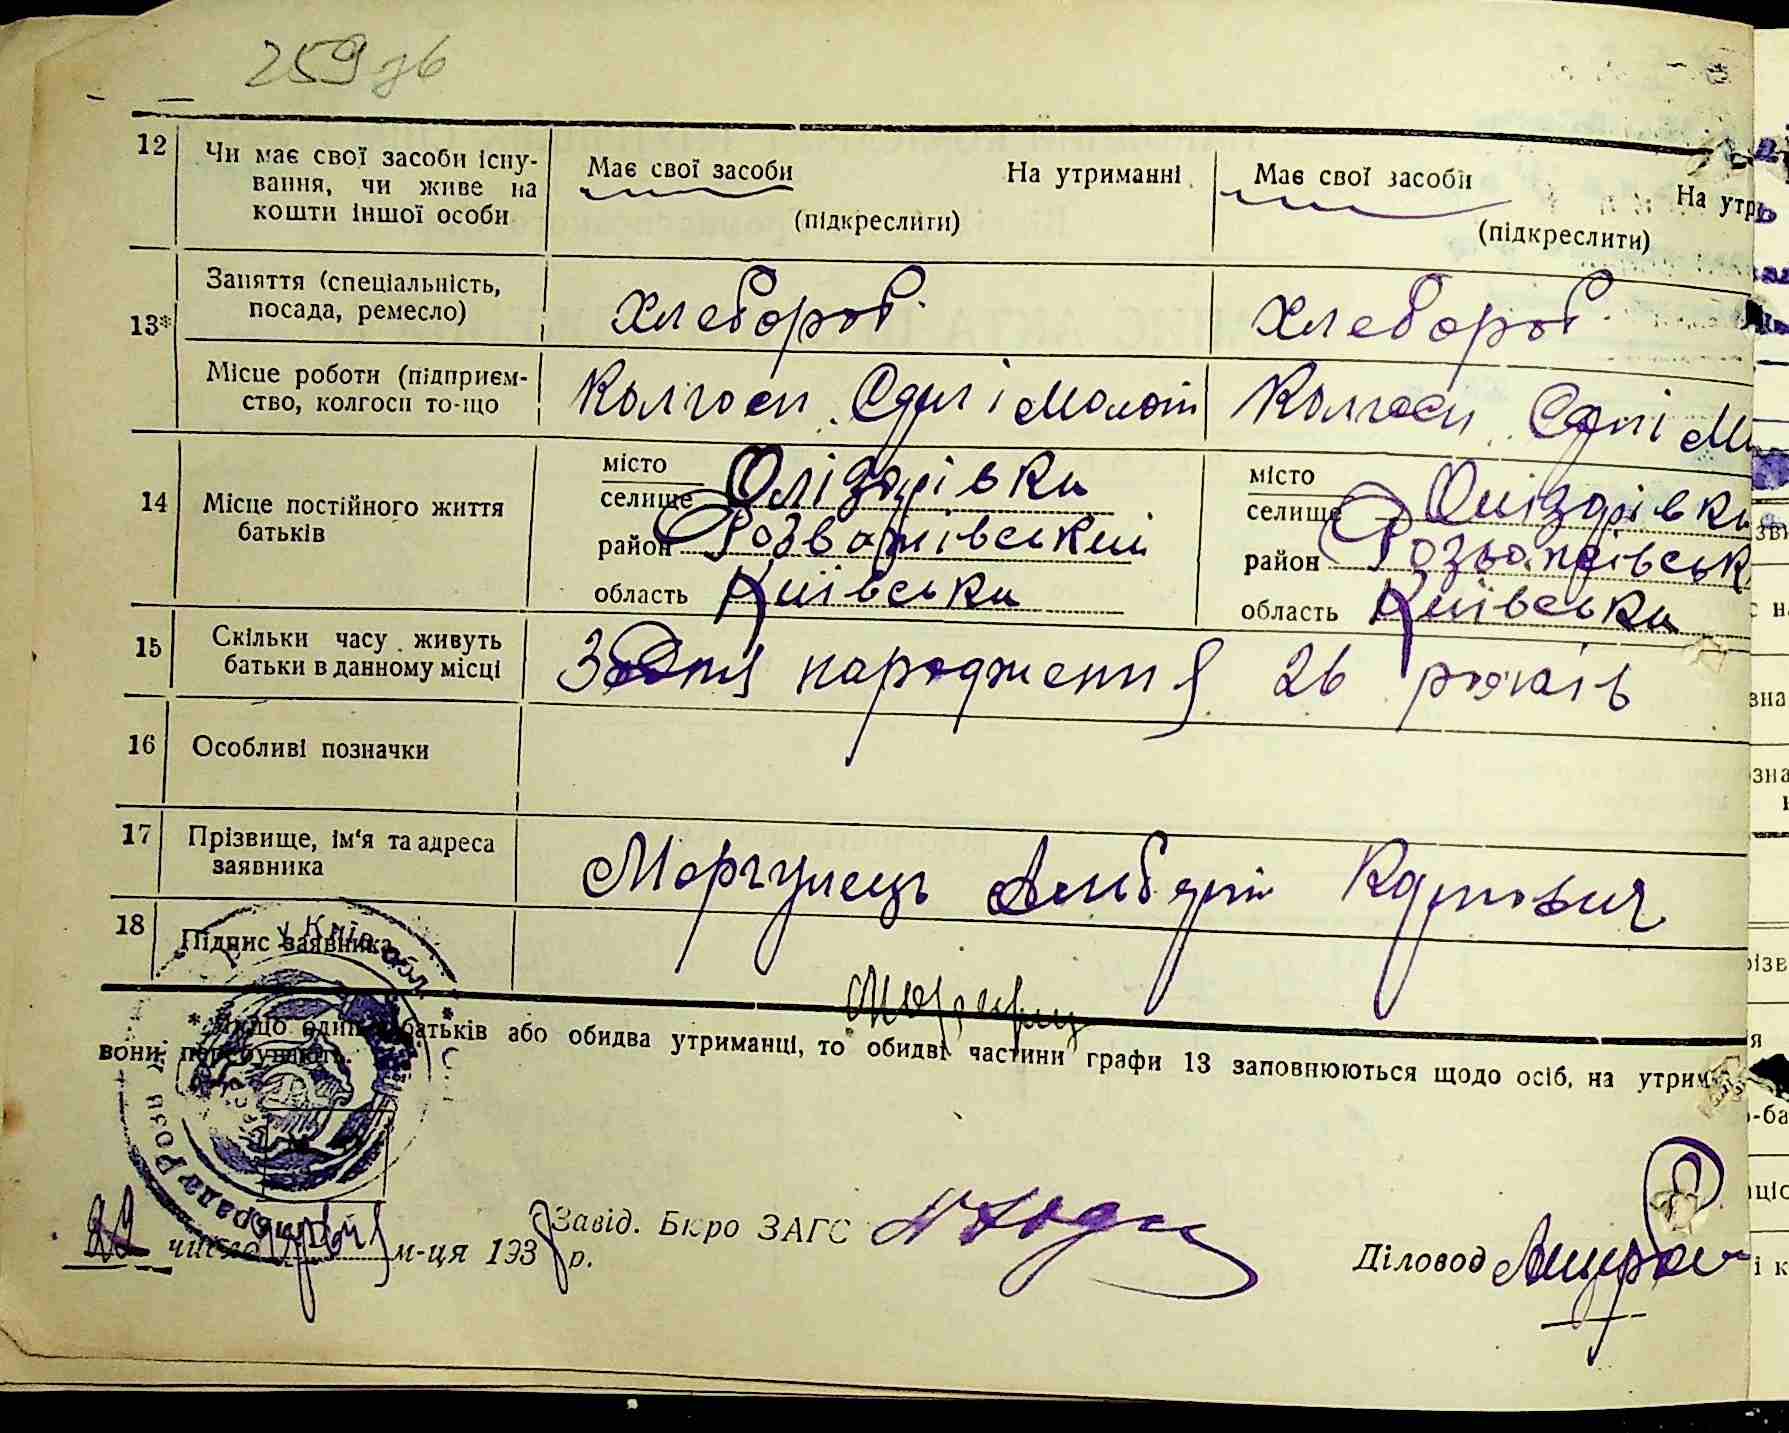 259 зв
12 Чи має свої засоби існу-
вання, чи живе на
кошти іншої особи
Має свої засоби На утриманні
(підкреслити)
Має свої засоби На утри
(підкреслити)
13* Заняття (спеціальність,
посада, ремесло)
хлебороб хлебороб
Місце роботи (підприєм-
ство, колгосп то-що
Колгосп Серп і Молот Колгосп Серп і М
14 Місце постійного життя
батьків
місто
селище Олізарівка
район Розважівський
область Київська
місто
селище Олізарівка
район Розважівськ
область Київська
15 Скільки часу живуть
батьки в данному місці
З дня народження 26 років
16 Особливі позначки
17 Прізвище, ім'я та адреса
заявника
Моргулець Карпович
18 Підпис заявника
* Якщо один батьків або обидва утриманці, то обидві частини графи 13 заповнюються щодо осіб, на утрим
вони перебувають.
22 число м-ця 1938 р.
Завід. Бюро ЗАГС
Діловод